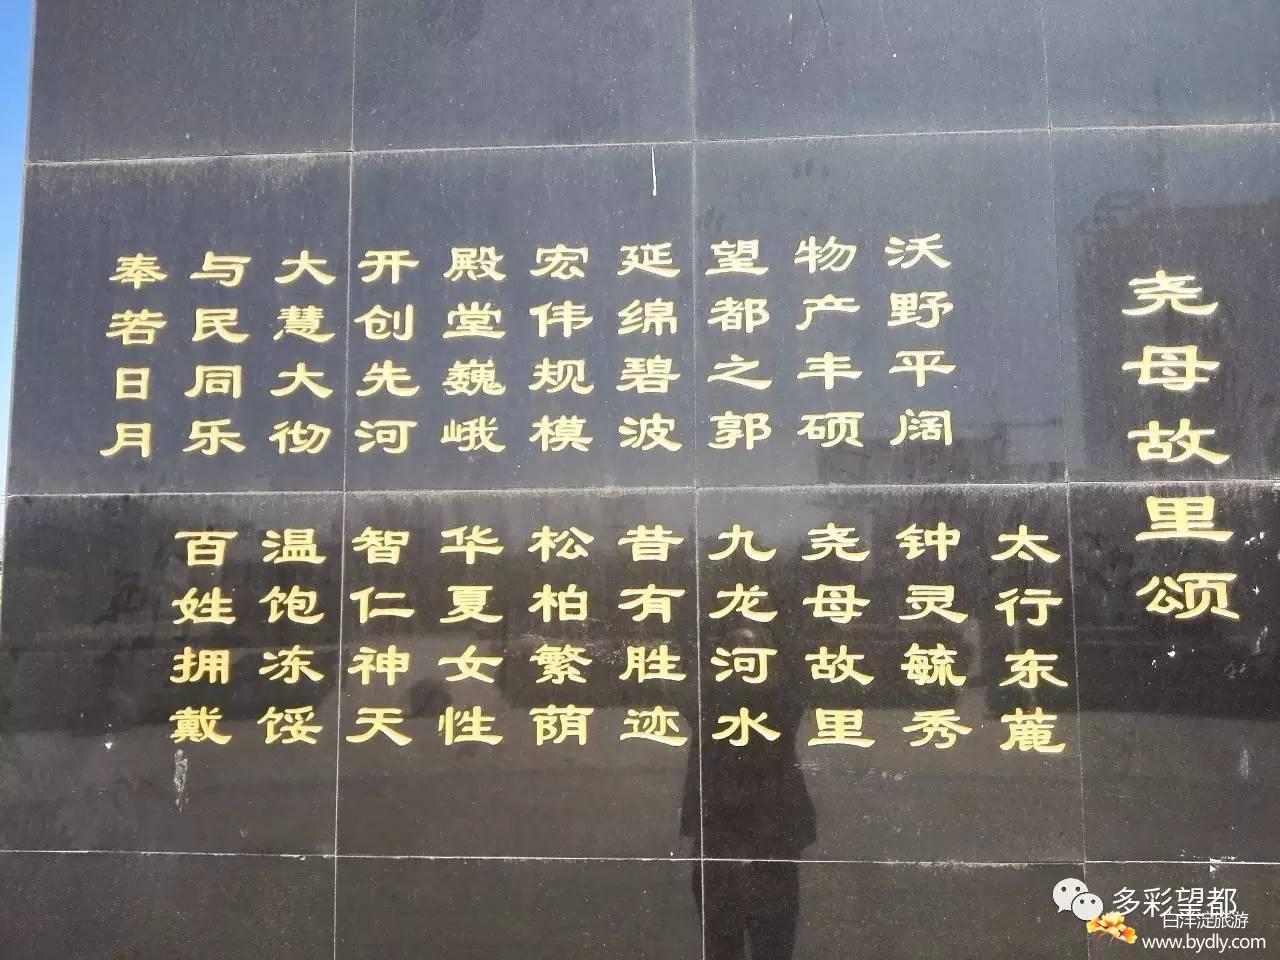 尧母故里颂
太行东麓
沃野平阔
钟灵毓秀
物产丰硕
尧母故里
望都之郭
九龙河水
延绵碧波
昔有胜迹
宏伟规模
松柏繁荫
殿堂巍峨
华夏女性
开创先河
智仁神天
大慧大彻
温饱冻馁
与民同乐
百姓拥戴
奉若日月
多彩望都
白洋淀旅游
www.bydly.com